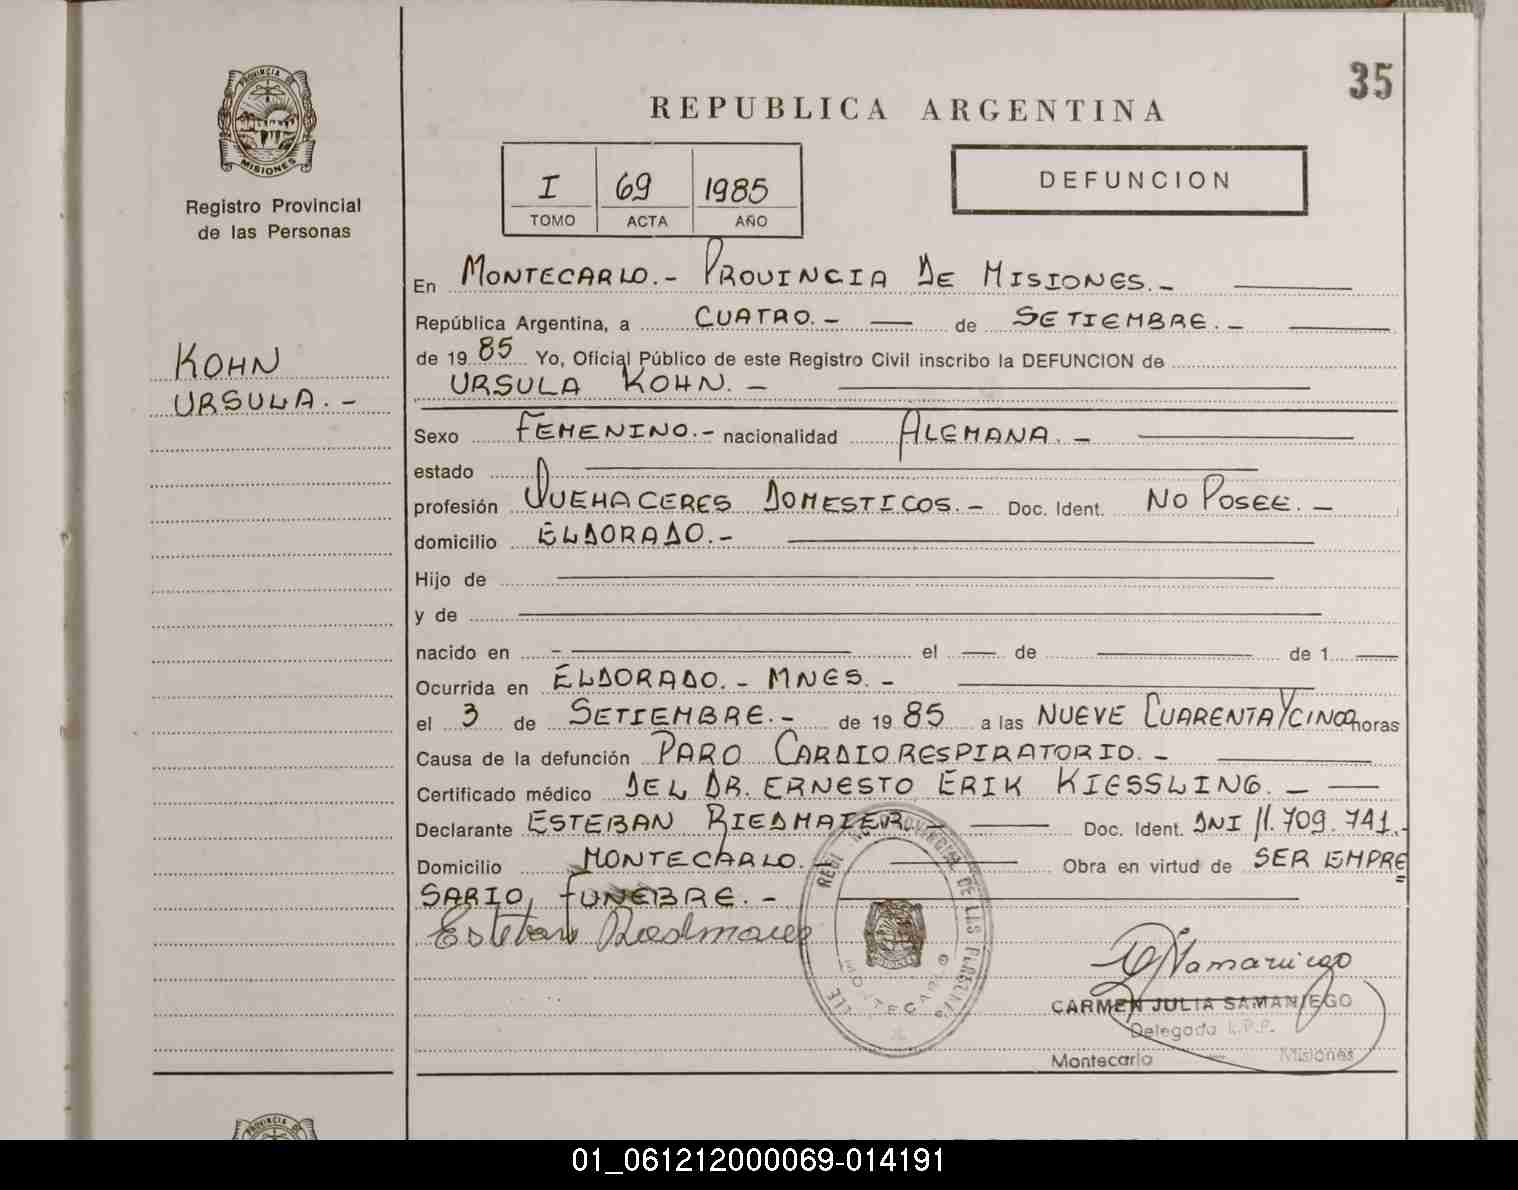 35
PROVINCIA DE
MISIONES
Registro Provincial
de las Personas
KOHN
URSULA.-
REPUBLICA ARGENTINA
I 69 1985
TOMO ACTA AÑO
DEFUNCION
En MONTECARLO.- PROVINCIA DE MISIONES.-
República Argentina, a CUATRO.- de SETIEMBRE.-
de 1985 Yo, Oficial Público de este Registro Civil inscribo la DEFUNCION de
URSULA KOHN.-
Sexo FEMENINO.- nacionalidad ALEMANA.-
estado
profesión QUEHACERES DOMESTICOS.- Doc. Ident. NO POSEE.-
domicilio ELDORADO.-
Hijo de
y de
nacido en - el de de 1
Ocurrida en ELDORADO.- MNES.-
el 3 de SETIEMBRE.- de 1985 a las NUEVE CUARENTA Y CINCO horas
Causa de la defunción PARO CARDIORESPIRATORIO.-
Certificado médico DEL DR. ERNESTO ERIK KIESSLING.-
Declarante ESTEBAN RIEDMAIER.- Doc. Ident. DNI 11.709.741.-
Domicilio MONTECARLO.- Obra en virtud de SER EMPRE
SARIO FUNEBRE.-
Esteban Riedmaier
PROVINCIAL DE LAS PERSONAS
MONTECARLO
CSamaniego
CARMEN JULIA SAMANIEGO
Delegada
Montecarlo - Misiones
PROVINCIA DE
01_061212000069-014191